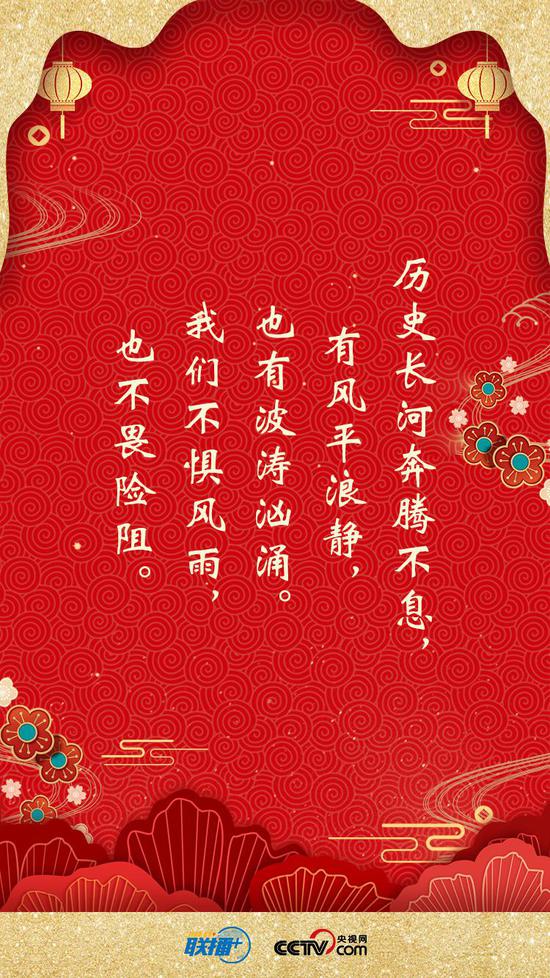 历史长河奔腾不息，
有风平浪静，
也有波涛汹涌。
我们不惧风雨，
也不畏险阻。
联播+
CCTV 央视网
com